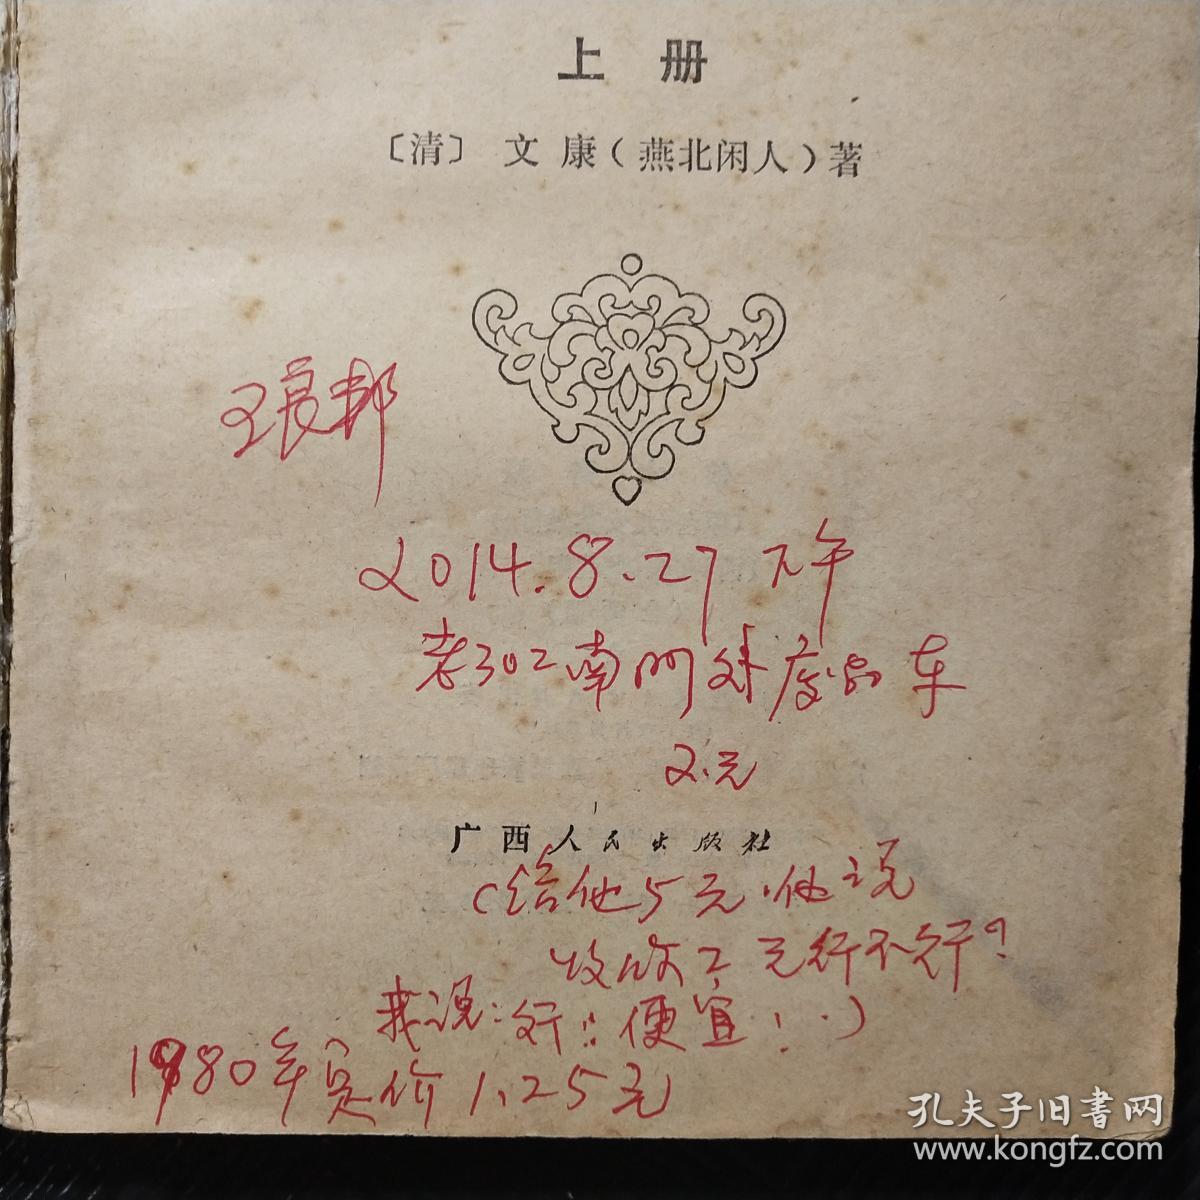 上册
〔清〕 文 康（燕北闲人）著
王良邦
2014.8.27 下午
老302南门外废品车
2.元
广西人民出版社
（给他5元.他说
收你2元行不行?
我说:行!:便宜!..)
1980年买价1.25元
孔夫子旧书网
www.kongfz.com